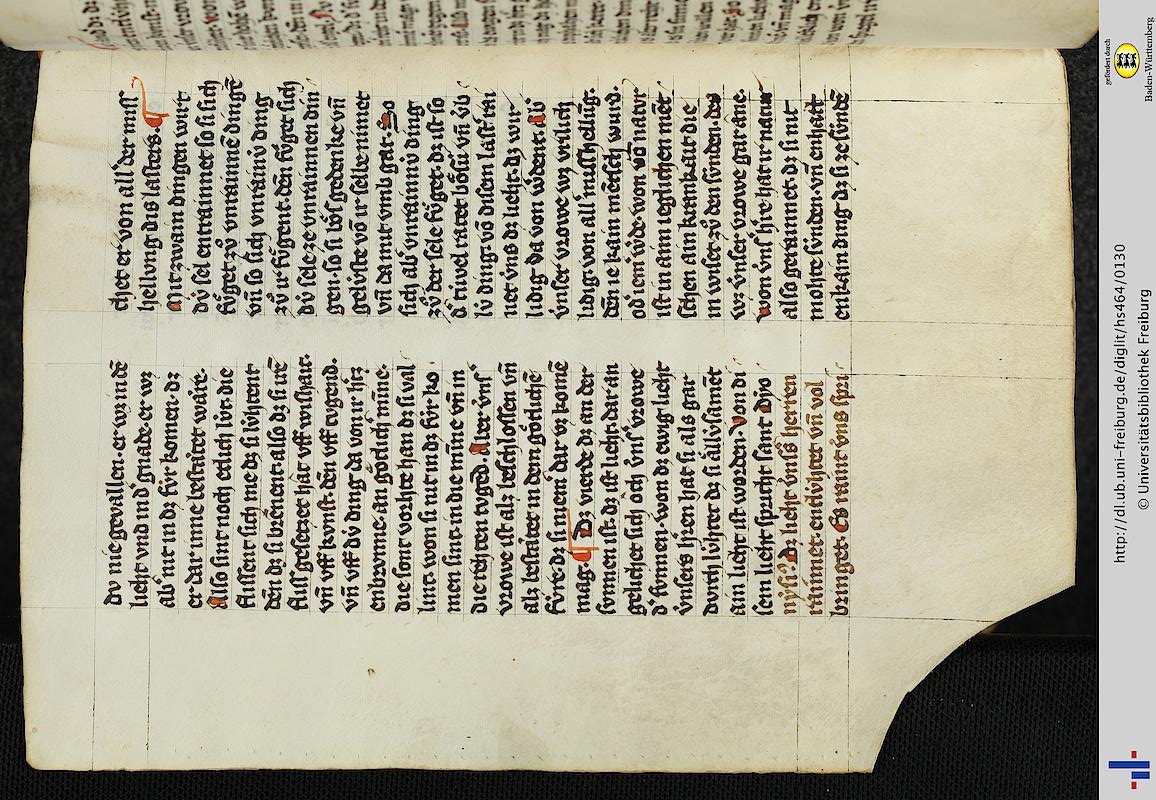 Dv nie gevallen. er wz indē
lieht vnd in d' gnade. er wz
ab' nit in dz fvr komen. dz
er dar inne bestātet wåre.
Also sint noch etlich lvt. die
flissent sich me dz si lvhtent
dēn dz si brēnent. also dz si irē
fliss gesetzet hat vff wishait.
vn̄ vff kvnst. dēn vff tvgend.
vn̄ vff dv ding da von ir hitz
enbrvnne. an götlich mīne.
die sont vorhte han dz si val
lint. won si nit in dz fvr ko
men sint. in die mīne vn̄ in
die rehten tvgēd. Aber vns'
vrowe ist alz beschlossen vn̄
alz bestātet in dem götlichē
fvre. dz si niem' dar vz komē
mag. Dz vierde dz an der
svnnen ist. dz ist lieht. dar an
gelichet sich och vns' vrowe
d' svnnen. won dz ewig lieht
vnsers h'ren hat si als gar
dvrh lvhtet dz si állv samēt
ain lieht ist worden. Von di
sem lieht spricht sant Dyo
nysi9. Dz lieht vns's herren
rainnet. entlvhtet vn̄ vol
bringet. Es raint vns spri
chet er von all' der miss
hellvng dis lasters.
Mit zwain dingen wirt
dv sel entrainnet so si sich
fvget zv̊ vnrainnē dingē
vn̄ so sich vnrainv ding
zv̊ ir fvgent. den fvget sich
dv sele ze vnrainnen din
gen. so si bös gedenke vn̄
gelvste vō ir selbe nimet
vn̄ da mit vmb gat. So
sich ab' vnrainv ding
zv̊ der sele fvget. dz ist so
d' tivel ratet bösv vn̄ vb
lv ding. vō disem last' rai
net vns dz lieht. dz wir
lidig da von w'dent. Ab'
vnser vrowe wz vrilich
lidig. von all' miss hellvg.
dēn ie kain mēsch wurd.
od' iem' w'de. won vō natvr
ist in aim ieglichen mēt
schen ain krankait die
in wiset zv̊ den svnden. des
wz vnser vrowe gar ane.
won vns' h're hat ir natur
also gerainnet. dz si nit
mohte svnden. vn̄ enhaīt
enkain ding dz si ze svnde
gefördert durch
Baden-Württemberg
http://dl.ub.uni-freiburg.de/diglit/hs464/0130
© Universitätsbibliothek Freiburg